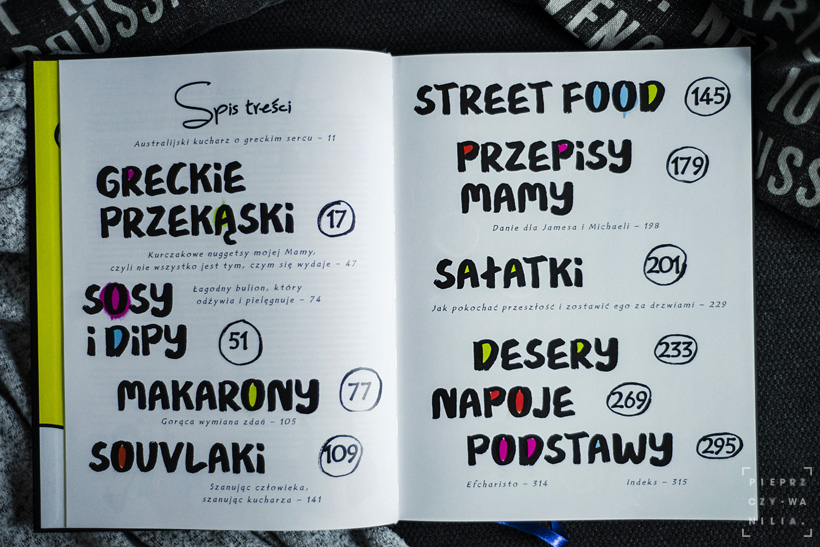 Spis treści
Australijski kucharz o greckim sercu – 11
GRECKiE
PRZEKĄSKi 17
Kurczakowe nuggetsy mojej Mamy,
czyli nie wszystko jest tym, czym się wydaje – 47
SOSY
i DiPY 51
Łagodny bulion, który
odżywia i pielęgnuje – 74
MAKARONY 77
Gorąca wymiana zdań – 105
SOUVLAKi 109
Szanując człowieka,
szanując kucharza – 141
STREET FOOD 145
PRZEPiSY
MAMY 179
Danie dla Jamesa i Michaeli – 198
SAŁATKi 201
Jak pokochać przeszłość i zostawić ego za drzwiami – 229
DESERY 233
NAPOJE 269
PODSTAWY 295
Efcharisto – 314
Indeks – 315
PIEPRZ
CZY·WA
NILIA.